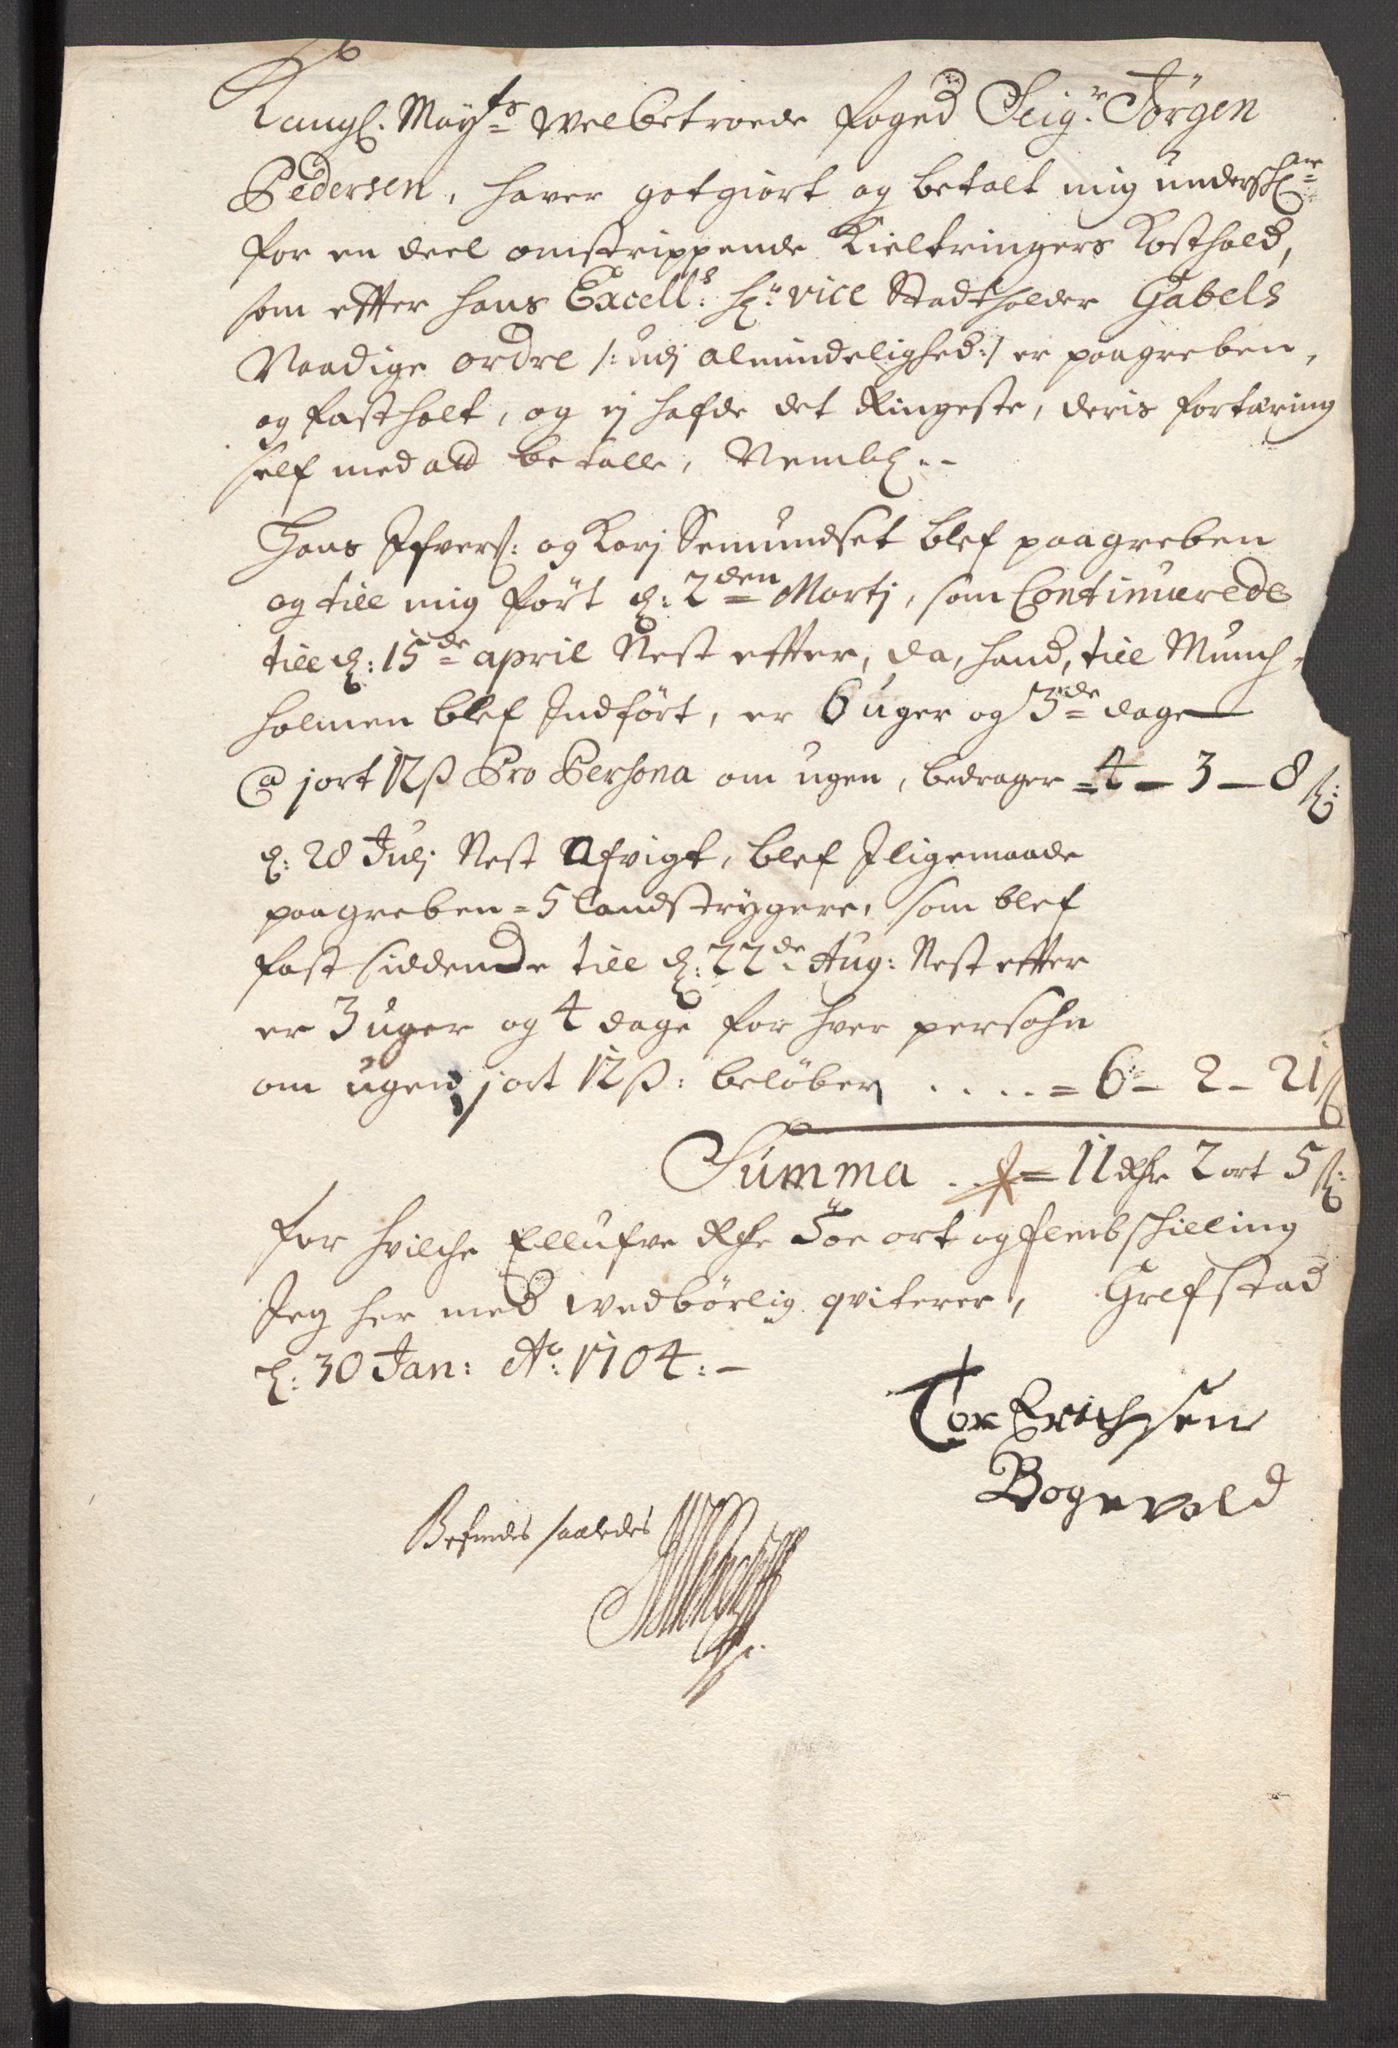 Kongl. Mayts Welbetroede foged Seigr. Jörgen
Pedersen, hafver gotgiort og betalt mig underschr:
for en deel omstrippende Kieltringers Kosthold,
som effter hans Excell:s hr: vice Stadtholder Gabels
Naadige ordre /: udj almindelighed :/ er paagreben,
og fastholt, og ej hafde det Ringeste, deris fortæring
self med att betalle, Nembl:-
Hans Ifvers: og Karj Semundset blef paagreben
og till mig fört d: 2den Martj, som Continuerede
till d: 15de april Nest effter, da, hand, till Munch-
holmen blef Indfört, er 6 uger og 3de dage
@ j ort 12 ß Pro Persona om ugen, bedrager = 4 - 3 - 8 ß:
d: 28 Julj Nest Afvigt, blef Iligemaade
paagreben = 5 Landstrygere, som blef
fast siddende till d: 22de Aug: Nest effter
er 3 uger og 4 dage for hver persohn
om ugen j ort 12 ß: belöber . . . . = 6 - 2 - 21 ß
Summa . . = 11 Rdr 2 ort 5 ß:
for hvilche Ellufve Rdr Toe ort og femb schilling
Jeg her med wedbörlig qviterer, Grefstad
d: 30 Jan: Ao: 1704:-
Tor Erichsen
Bogevold
Befindes saaledes